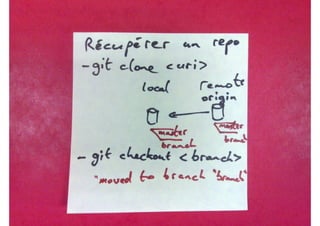 Récupérer un repo
- git clone <uri>
local remote
origin
master master
branch branch
- git checkout <branch>
"moved to branch "branch"